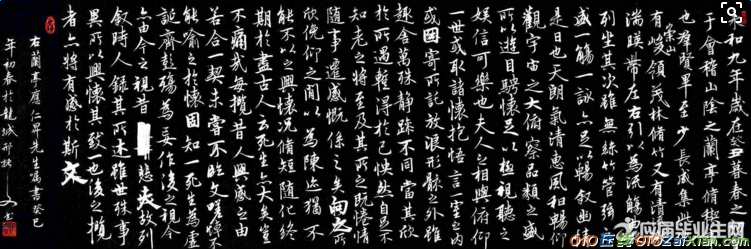 和九年歲在癸丑暮春之
于會稽山陰之蘭亭脩稧
也群賢畢至少長咸集此
有崇山峻領茂林脩竹又有清
湍暎帶左右引以為流觴
列坐其次雖無絲竹管弦
盛一觴一詠亦足以暢敘幽情
是日也天朗氣清惠風和暢仰
觀宇宙之大俯察品類之盛
所以遊目騁懷足以極視聽之
娛信可樂也夫人之相與俯仰
一世或取諸懷抱悟言一室之內
或因寄所託放浪形骸之外雖
趣舍萬殊靜躁不同當其欣
於所遇蹔得於己怏然自足不
知老之將至及其所之既惓情
隨事遷感慨係之矣向之所
欣俛仰之閒以為陳迹猶不
能不以之興懷况脩短隨化終
期於盡古人云死生亦大矣豈
不痛哉每攬昔人興感之由
若合一契未嘗不臨文嗟悼不
能喻之於懷固知一死生為虛
誕齊彭殤為妄作後之視今
亦由今之視昔悲夫故列
敘時人錄其所述雖世殊事
異所以興懷其致一也後之攬
者亦將有感於斯文
右蘭亭應仁昇先生寫書癸巳
年初春於龍城邢
应届毕业生网
010在线 010zaixian.com